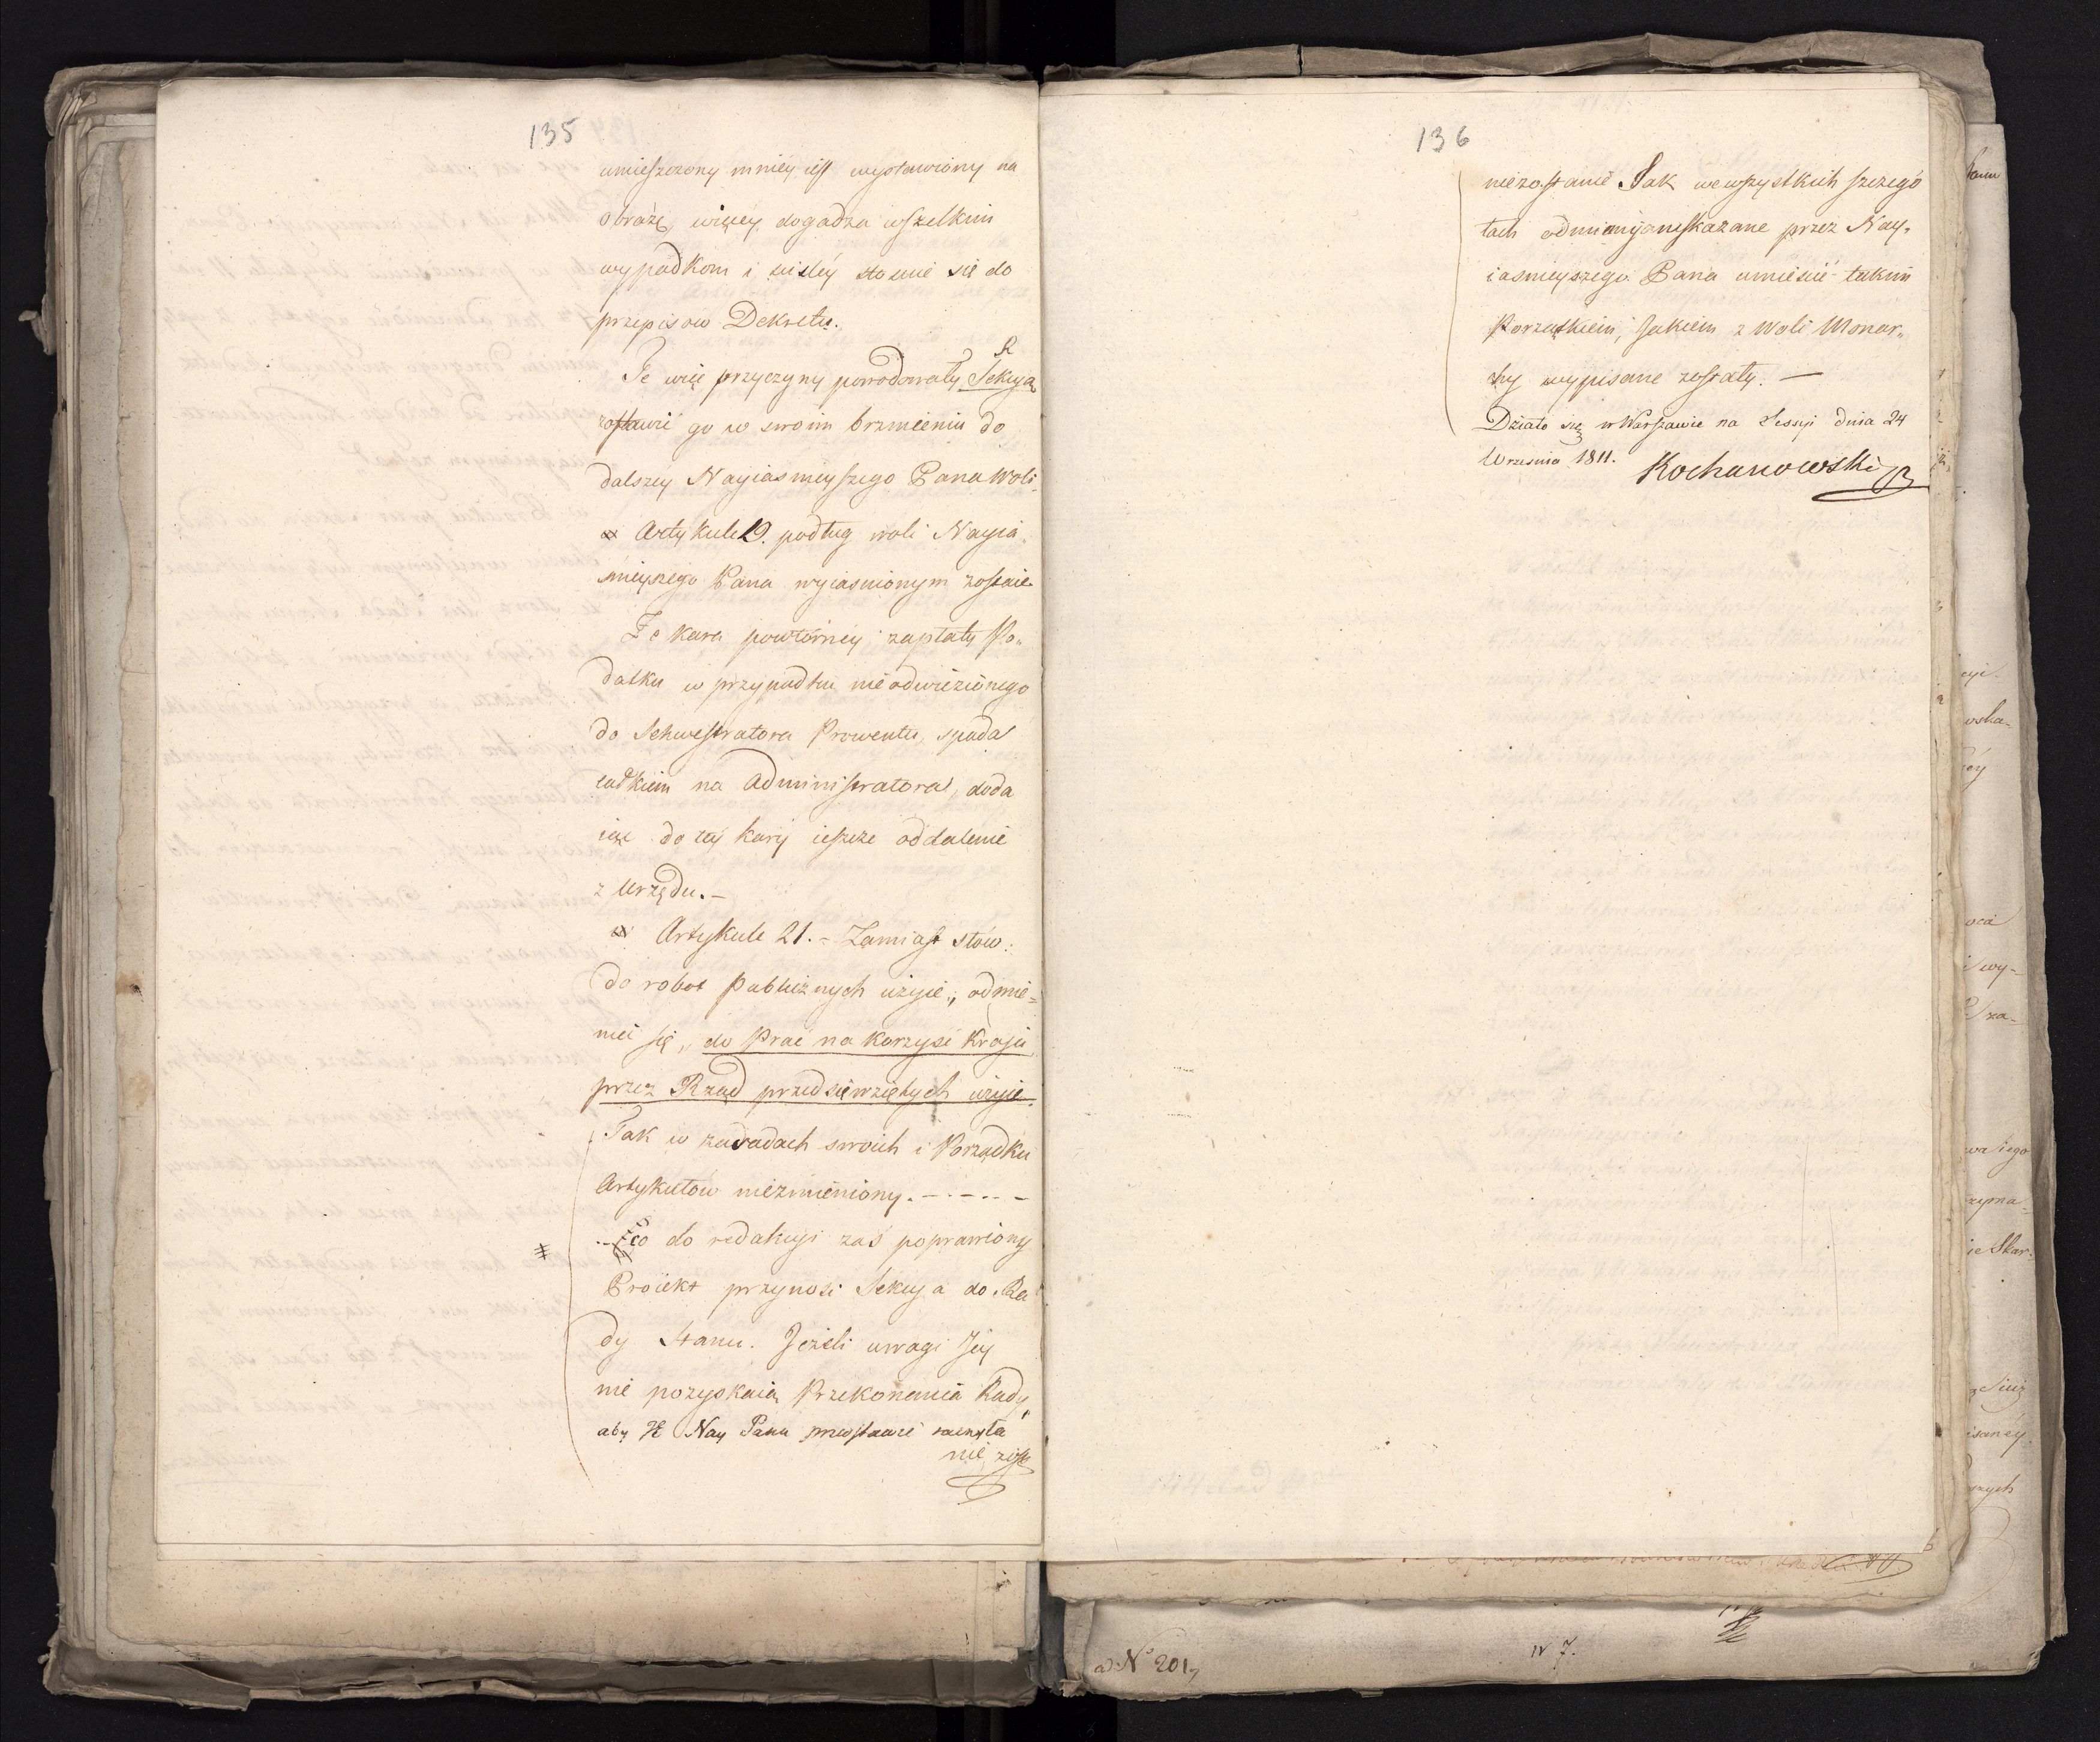 135
umieszczony mniey iest wystawiony na
obrazę, więcey dogadza wszelkim
wypadkom i ściśley stosuie się do
przepisow Dekretu.
Te więc przyczyny powodowały Sekcyą
zostawić go w swoim brzmieniu do
dalszey Nayiasnieyszego Pana Woli.
w Artykule 19. podług woli Nayia
snieyszego Pana wyiasnionym zostaie
Że kara powtórney zapłaty Po„
datku w przypadku nieodwiezionego
do Sekwestratora Prowentu, spada
całkiem na Administratora, doda
iąc do tey kary ieszcze oddalenie
z Urzędu. –
w Artykule 21. – Zamiast słow:
do robot publicznych użycie„ odmie=
nić się „do Prac na korzyść Kraju
przez Rząd przedsięwziętych użycie.
Tak w zasadach swoich i Porządku
Artykułów niezmieniony. – - – - –
co do redakcyi zaś poprawiony
Proiekt przynosi Sekcya do Ra
dy Stanu. Jeżeli uwagi Jey
nie pozyskaią Przekonania Rady,
aby Nay Panu przedstawić raczyła
nie zost
136
niezostanie Jak we wszystkich szczegó
łach odmiany wskazane przez Nay„
iasnieyszego Pana umieścić takim
Porządkiem, Jakiem z Woli Monar„
chy wypisane zostały. –
Działo się w Warszawie na Sessyi dnia 24
Września 1811.
Kochanowski
ad N° 201,